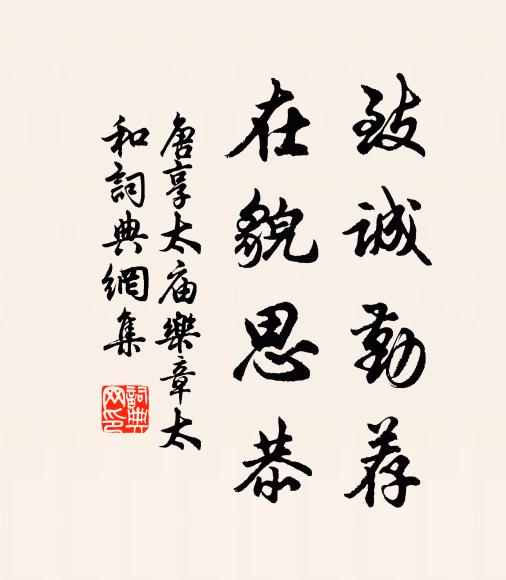 致诚勤荐
在貌思恭
唐享太庙樂章太
和詞典網集
詞典网印